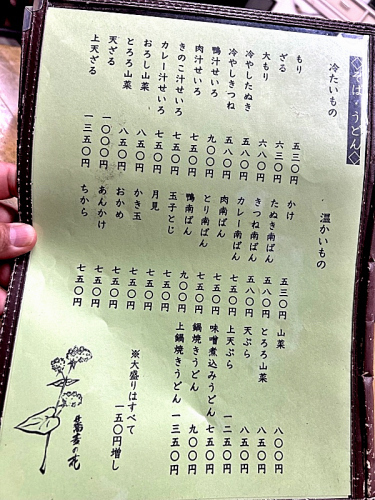 ◇そば・うどん◇
冷たいもの
もり 五三〇円
ざる 六三〇円
大もり 六八〇円
冷やしたぬき 五八〇円
冷やしきつね 五八〇円
鴨汁せいろ 九〇〇円
肉汁せいろ 七五〇円
きのこ汁せいろ 七五〇円
カレー汁せいろ 七五〇円
おろし山菜
とろろ山菜 八五〇円
天ざる 一〇〇〇円
上天ざる 一三五〇円
温かいもの
かけ 五三〇円
たぬき南ばん 五八〇円
きつね南ばん 五八〇円
カレー南ばん 七五〇円
肉南ばん 七五〇円
とり南ばん 七五〇円
鴨南ばん 九〇〇円
玉子とじ 七五〇円
月見 七五〇円
かき玉 七五〇円
おかめ 七五〇円
あんかけ 七五〇円
ちから 七五〇円
山菜 八〇〇円
とろろ山菜 八五〇円
天ぷら 八五〇円
上天ぷら 一二五〇円
味噌煮込みうどん 七五〇円
鍋焼きうどん 九〇〇円
上鍋焼きうどん 一三五〇円
※大盛りはすべて
一五〇円増し
蕎麦の花